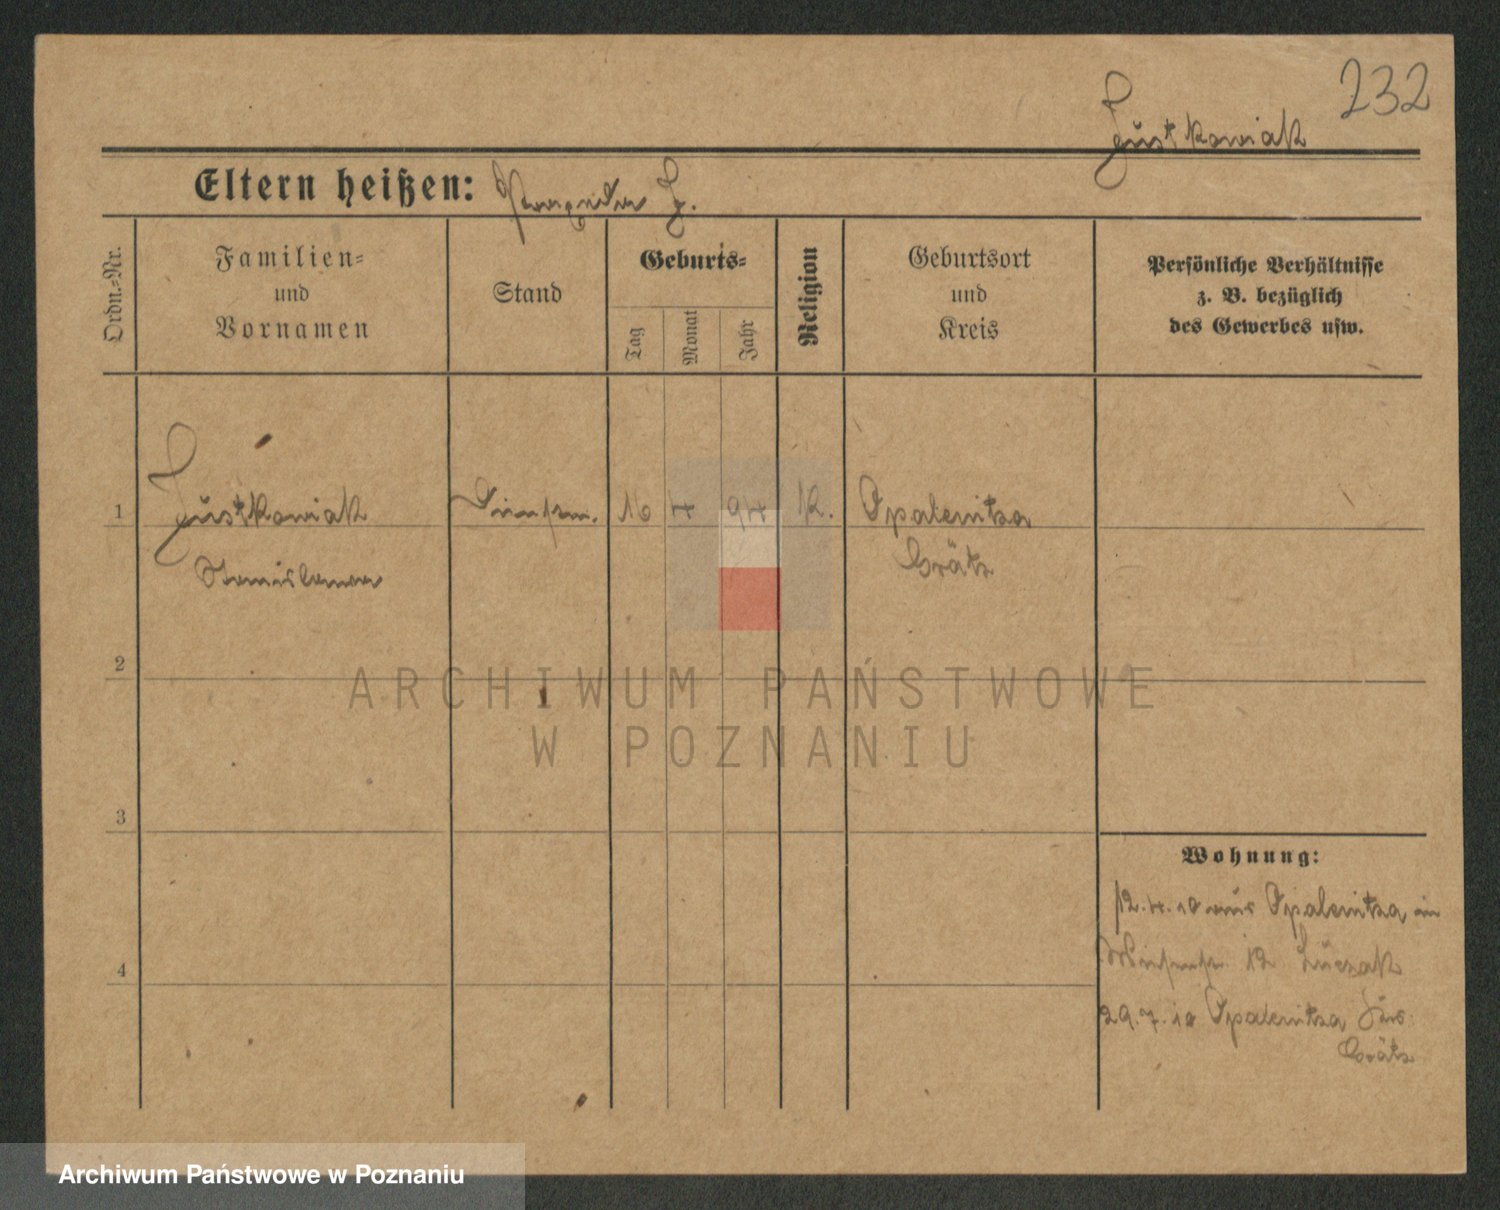 232
Justkowiak
Eltern heißen:
Ordn.-Nr.
Familien-
und
Vornamen
Stand
Geburts-
Tag
Monat
Jahr
Religion
Geburtsort
und
Kreis
Persönliche Verhältnisse
z. B. bezüglich
des Gewerbes usw.
1
Justkowiak
Stanislawa
Dienstm.
16
4
94
K.
Opalenitza
Grätz
2
3
4
Wohnung:
12.4.10 aus Opalenitza in
12 Luczak
29.7.10 Opalenitza
Grätz
ARCHIWUM PAŃSTWOWE
W POZNANIU
Archiwum Państwowe w Poznaniu